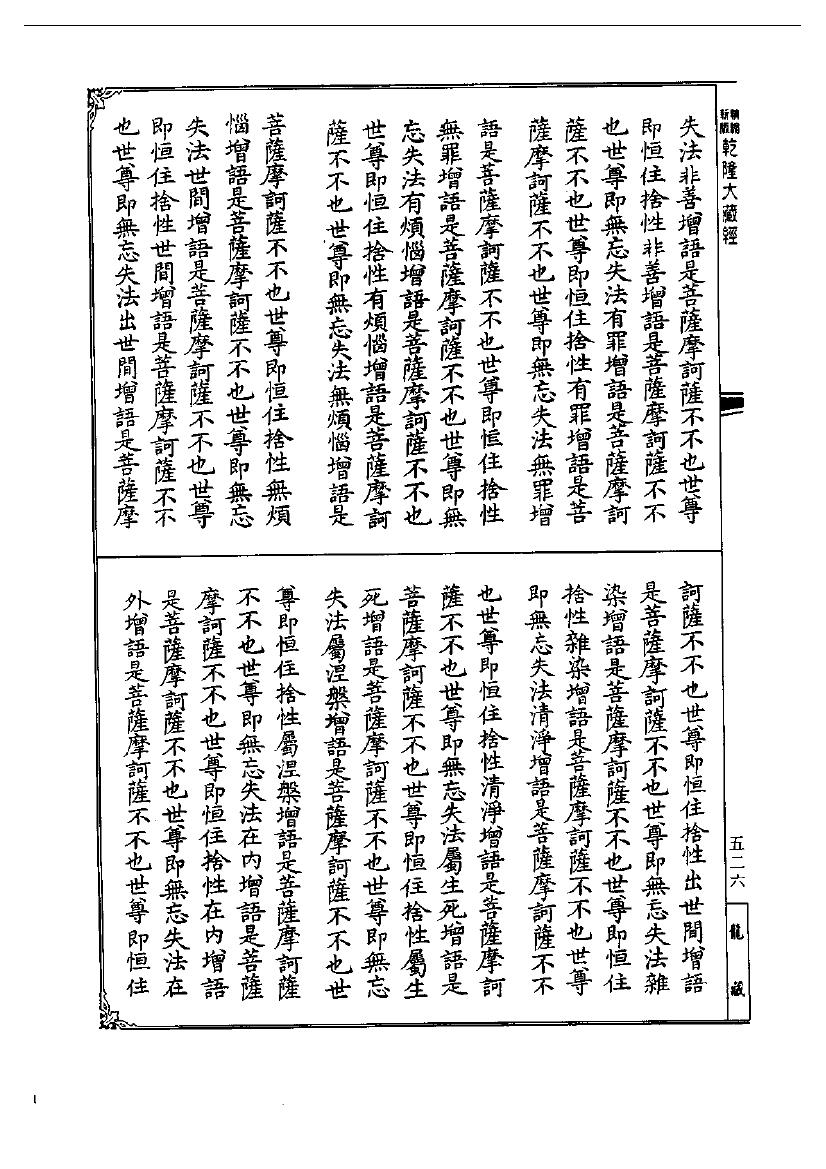 新編
新版
乾隆大藏經
失法非善增語是菩薩摩訶薩不不也世尊
即恒住捨性非善增語是菩薩摩訶薩不不
也世尊即無忘失法有罪增語是菩薩摩訶
薩不不也世尊即恒住捨性有罪增語是菩
薩摩訶薩不不也世尊即無忘失法無罪增
語是菩薩摩訶薩不不也世尊即恒住捨性
無罪增語是菩薩摩訶薩不不也世尊即無
忘失法有煩惱增語是菩薩摩訶薩不不也
世尊即恒住捨性有煩惱增語是菩薩摩訶
薩不不也世尊即無忘失法無煩惱增語是
菩薩摩訶薩不不也世尊即恒住捨性無煩
惱增語是菩薩摩訶薩不不也世尊即無忘
失法世間增語是菩薩摩訶薩不不也世尊
即恒住捨性世間增語是菩薩摩訶薩不不
也世尊即無忘失法出世間增語是菩薩摩
訶薩不不也世尊即恒住捨性出世間增語
是菩薩摩訶薩不不也世尊即無忘失法雜
染增語是菩薩摩訶薩不不也世尊即恒住
捨性雜染增語是菩薩摩訶薩不不也世尊
即無忘失法清淨增語是菩薩摩訶薩不不
也世尊即恒住捨性清淨增語是菩薩摩訶
薩不不也世尊即無忘失法屬生死增語是
菩薩摩訶薩不不也世尊即恒住捨性屬生
死增語是菩薩摩訶薩不不也世尊即無忘
失法屬涅槃增語是菩薩摩訶薩不不也世
尊即恒住捨性屬涅槃增語是菩薩摩訶薩
不不也世尊即無忘失法在內增語是菩薩
摩訶薩不不也世尊即恒住捨性在內增語
是菩薩摩訶薩不不也世尊即無忘失法在
外增語是菩薩摩訶薩不不也世尊即恒住
五二六
龍藏